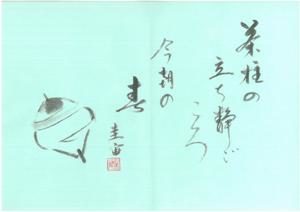 茶柱の
立ち静ご
ころ
今朝の
春